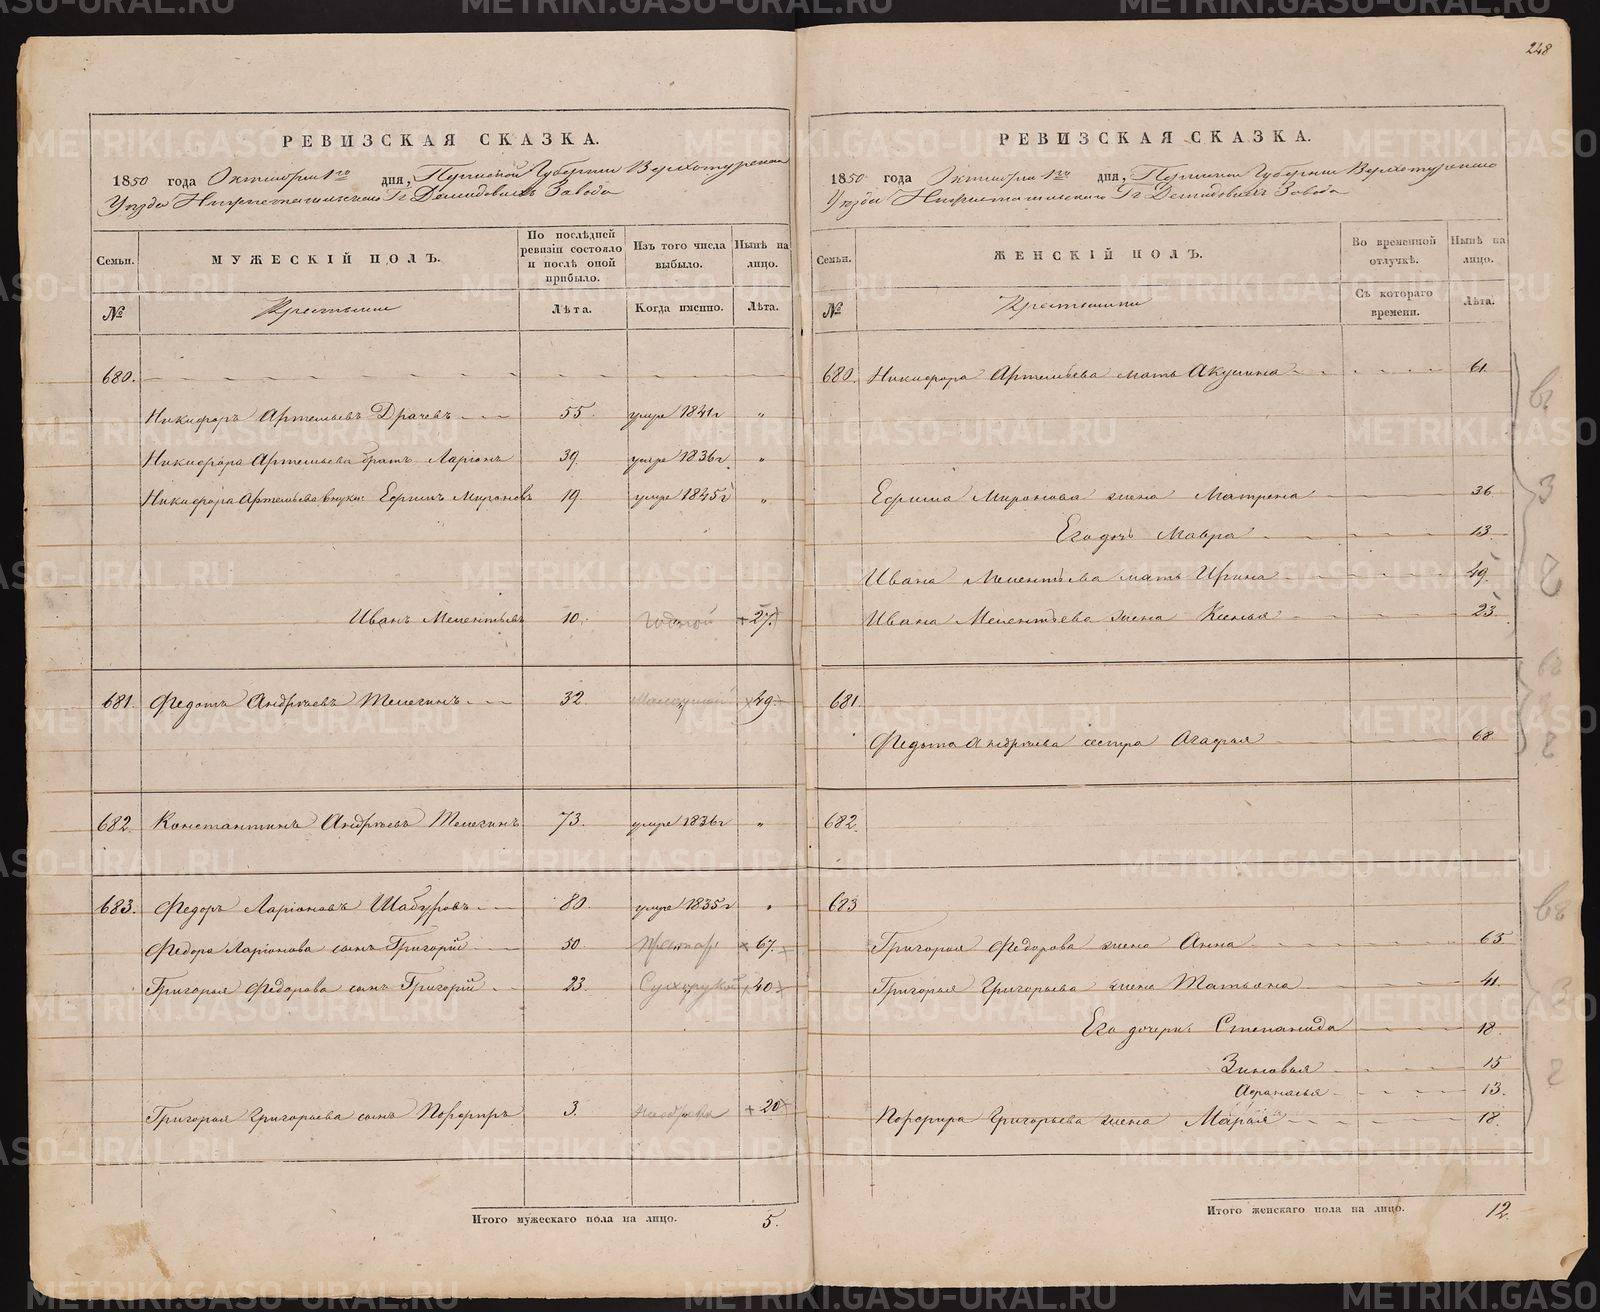 248
РЕВИЗСКАЯ СКАЗКА.
1850 года Октября 1го дня, Пермской Губернии Верхотурскаго
Уѣзда Нижнетагильскаго Гг Демидовыхъ Завода
Семьи. МУЖЕСКІЙ ПОЛЪ. По послѣдней ревизіи состояло и послѣ оной прибыло. Изъ того числа выбыло. Нынѣ на лицо.
№ Крестьяне Лѣта. Когда именно. Лѣта.
680.
Никифоръ Артемьевъ Драчевъ 55. умре 1841г "
Никифора Артемьева братъ Ларіонъ 39. умре 1836г. "
Никифора Артемьева внуки: Ефимъ Мироновъ 19 умре 1845г "
Иванъ Мелентьевъ 10. Годной 27.
681. Федотъ Андрѣевъ Телегинъ 32 49
682. Константинъ Андрѣевъ Телегинъ 73. умре 1836г "
683. Федоръ Ларіоновъ Шабуровъ 80. умре 1835г "
Федора Ларіонова сынъ Григорій 50 67.
Григорья Федорова сынъ Григорій 23. Сухорукой 40
Григорья Григорьева сынъ Порфиръ 3. 20
Итого мужескаго пола на лицо. 5.
РЕВИЗСКАЯ СКАЗКА.
1850 года Октября 1го дня, Пермской Губернии Верхотурскаго
Уѣзда Нижнетагильскаго Гг Демидовыхъ Завода
Семьи. ЖЕНСКІЙ ПОЛЪ. Во временной отлучкѣ. Нынѣ на лицо.
№ Крестьянки Съ котораго времени. Лѣта.
680. Никифора Артемьева мать Акулина 61.
Ефима Миронова жена Матрена 36
Его дочь Мавра 13.
Ивана Мелентьева мать Ирина 49.
Ивана Мелентьева жена Ксенья 23
681.
Федота Андрѣева сестра Агафья 68
682.
623
Григорья Федорова жена Анна 65
Григорья Григорьева жена Татьяна 41.
Его дочери: Степанида 18.
Зиновья 15
Афанасья 13.
Порфира Григорьева жена Марья 18.
Итого женскаго пола на лицо. 12.
METRIKI.GASO-URAL.RU